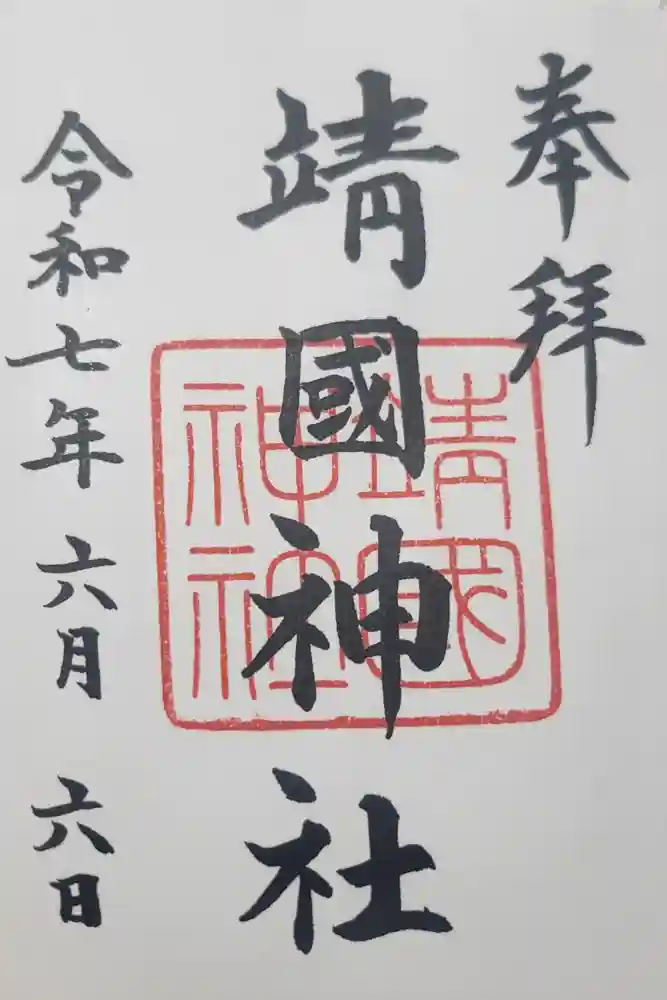 奉拜
靖國神社
靖國神社
令和七年 六月 六日